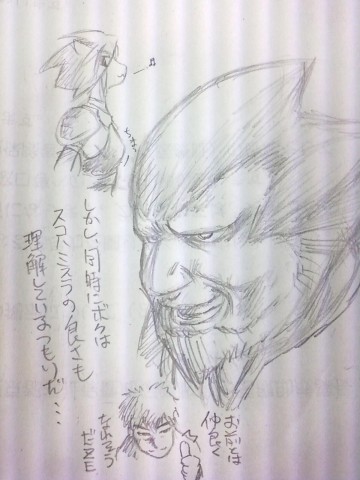 しかし、同時にボクは
スコハミスラの良さも
理解しているつもりだ…
お前とは
仲良く
なれそう
だZE